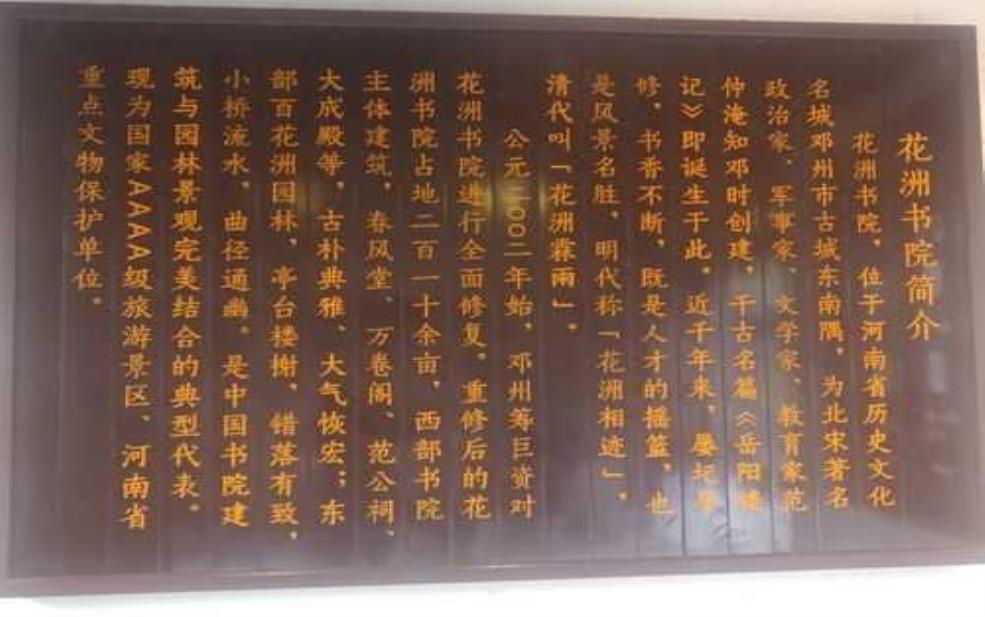 花洲书院简介
花洲书院，位于河南省历史文化
名城邓州市古城东南隅，为北宋著名
政治家、军事家、文学家、教育家范
仲淹知邓时创建，千古名篇《岳阳楼
记》即诞生于此。近千年来，屡圮屡
修，书香不断，既是人才的摇篮，也
是风景名胜，明代称「花洲相迹」，
清代叫「花洲霖雨」。
公元二〇〇二年始，邓州筹巨资对
花洲书院进行全面修复。重修后的花
洲书院占地二百一十余亩，西部书院
主体建筑，春风堂、万卷阁、范公祠、
大成殿等，古朴典雅、大气恢宏；东
部百花洲园林，亭台楼榭，错落有致，
小桥流水，曲径通幽。是中国书院建
筑与园林景观完美结合的典型代表。
现为国家AAAA级旅游景区、河南省
重点文物保护单位。